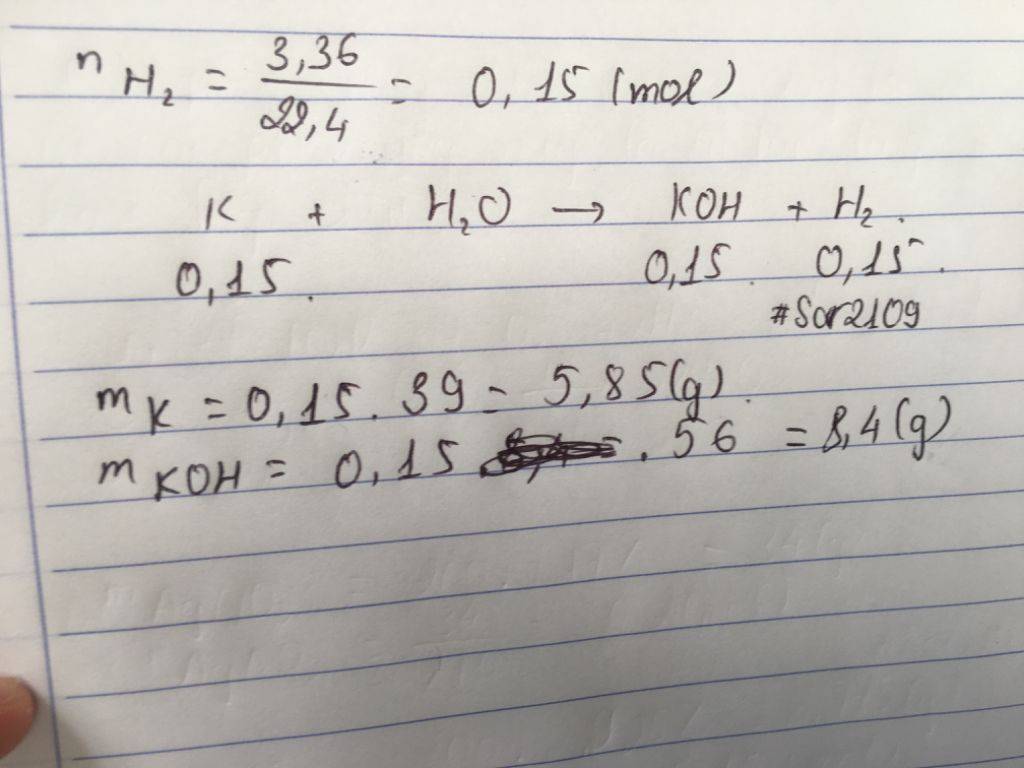 n H₂ = 3,36 / 22,4 = 0,15 (mol)
K + H₂O → KOH + H₂.
0,15. 0,15. 0,15.
#Sar2109
m K = 0,15. 39 = 5,85(g).
m KOH = 0,15 . 56 = 8,4(g)